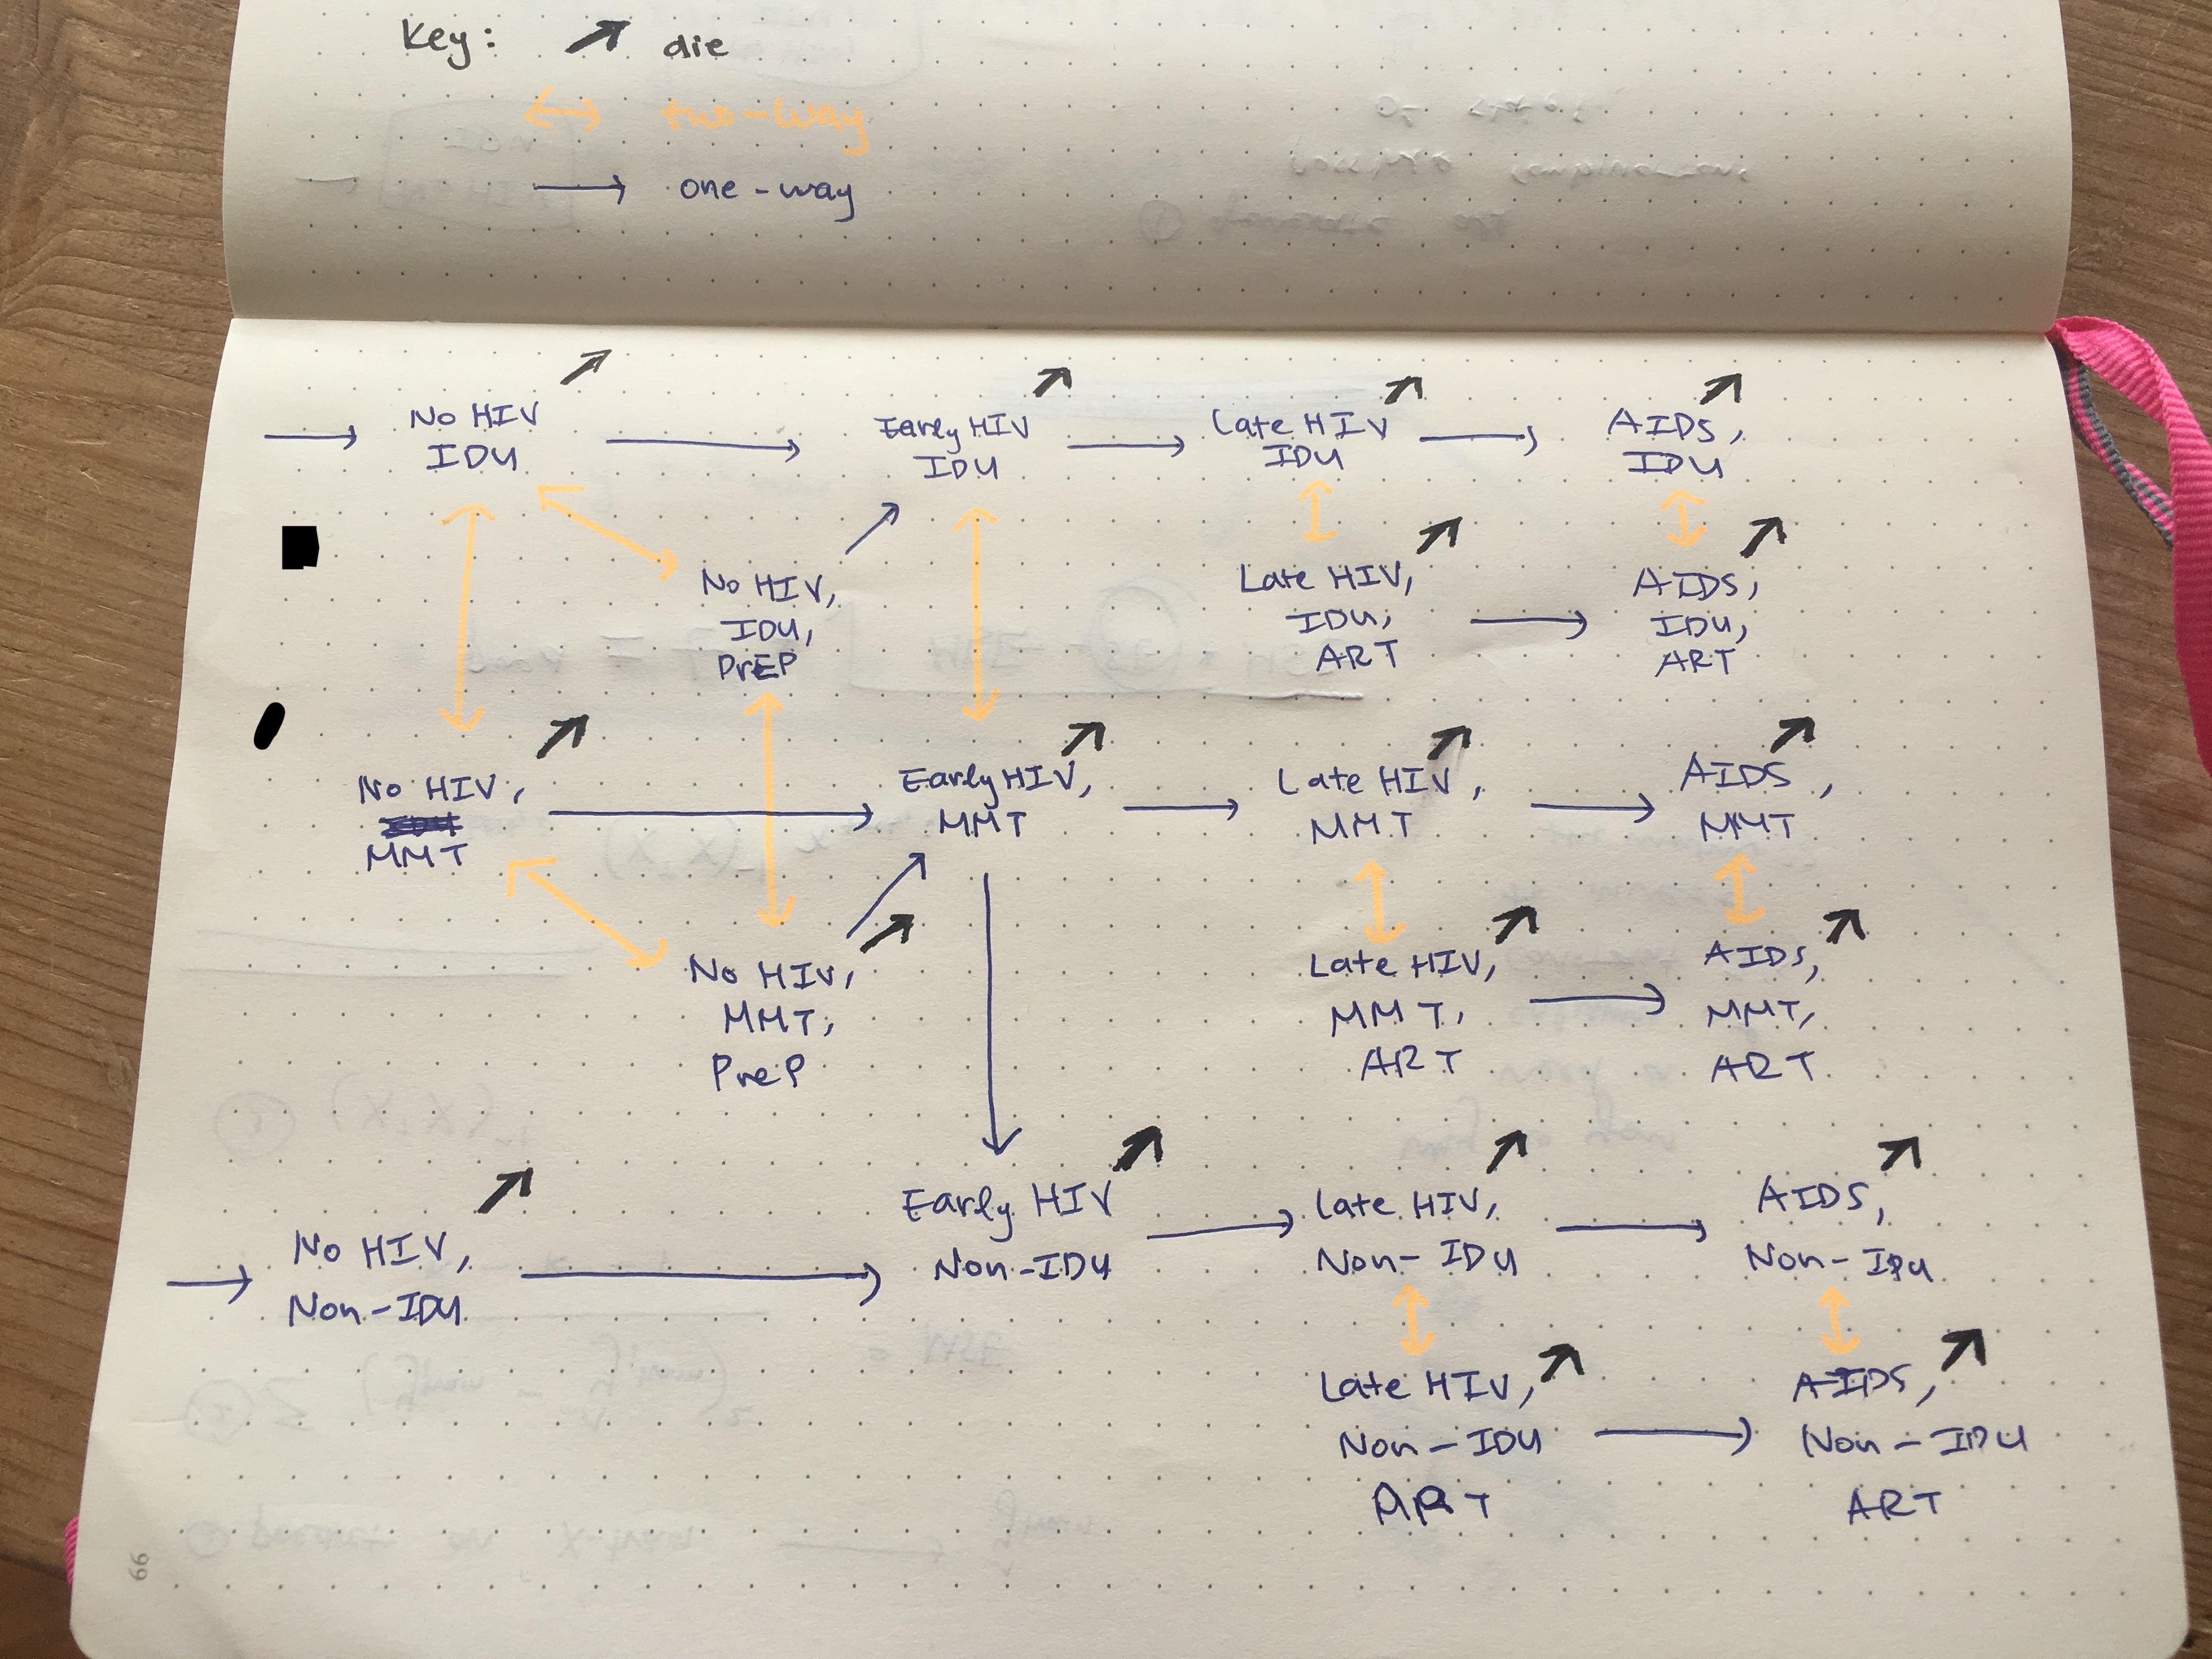 Key: die
two-way
one-way
No HIV
IDU
Early HIV
IDU
Late HIV
IDU
AIDS,
IDU
No HIV,
IDU,
PrEP
Late HIV,
IDU,
ART
AIDS,
IDU,
ART
No HIV,
MMT
Early HIV,
MMT
Late HIV,
MMT
AIDS,
MMT
No HIV,
MMT,
PreP
Late HIV,
MMT,
ART
AIDS,
MMT,
ART
No HIV,
Non-IDU
Early HIV
Non-IDU
Late HIV,
Non-IDU
AIDS,
Non-IDU
Late HIV,
Non-IDU
ART
AIDS,
Non-IDU
ART
99